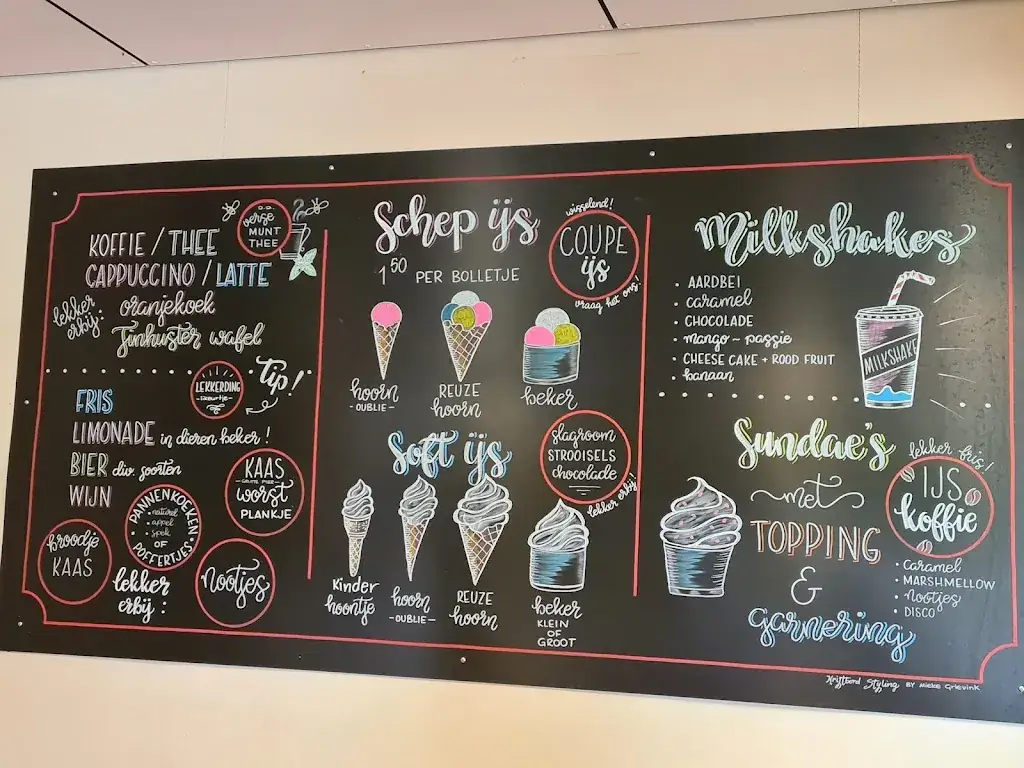 KOFFIE / THEE
verse
MUNT
THEE
CAPPUCCINO / LATTE
lekker
erbij:
oranjekoek
Tinhuster wafel
LEKKERDING
Tip!
FRIS
LIMONADE in dieren beker!
BIER div. soorten
WIJN
KAAS
worst
PLANKJE
PANNENKOEKEN
• naturel
• appel
• spek
OF
POFFERTJES
broodje
KAAS
lekker
erbij:
nootjes
Schep ijs
1 50 PER BOLLETJE
wisselend!
COUPE
ijs
vraag het ons!
hoorn
- OUBLIE -
REUZE
hoorn
beker
Soft ijs
slagroom
STROOISELS
chocolade
lekker erbij
kinder
hoontje
hoorn
- OUBLIE -
REUZE
hoorn
beker
KLEIN
OF
GROOT
Milkshakes
• AARDBEI
• caramel
• CHOCOLADE
• mango - passie
• CHEESE CAKE + ROOD FRUIT
• banaan
MILKSHAKE
Sundae's
met
TOPPING
&
garnering
lekker fris!
IJS
koffie
• caramel
• MARSHMELLOW
• nootjes
• DISCO
Krijtbord Styling BY Mieke Grievink